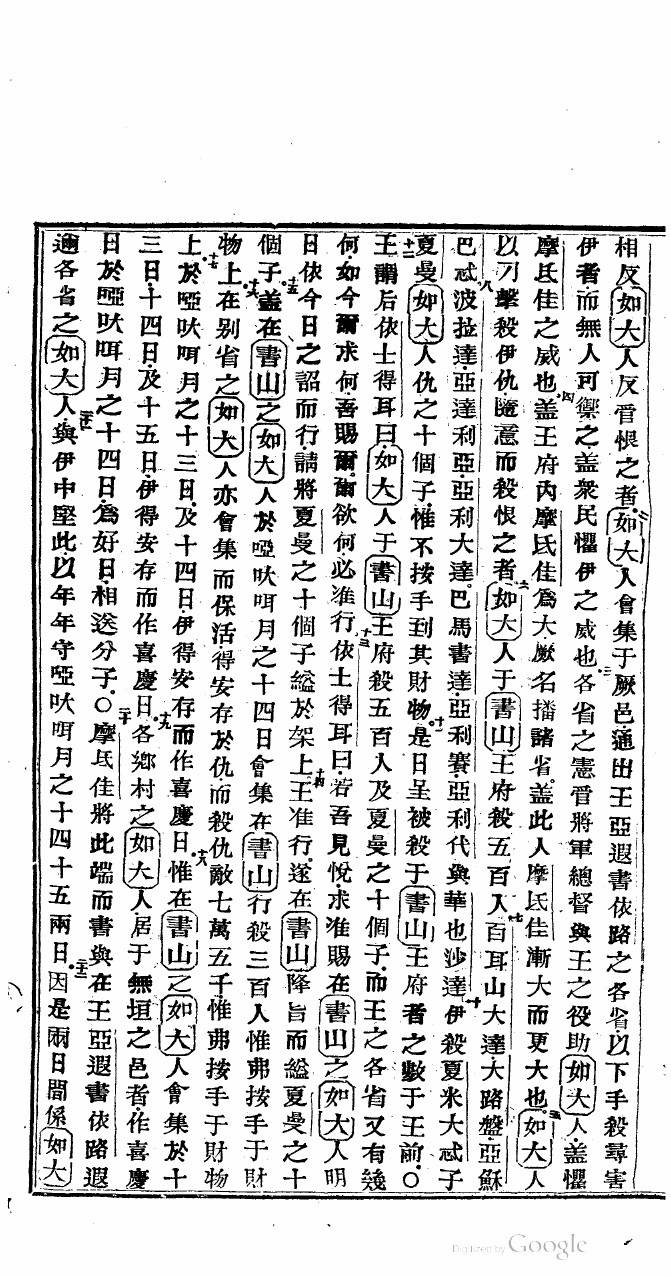 相反如大人反晉恨之者二如大人會集于厥邑通出王亞遐書依路之各省以下手殺尋害
伊者而無人可禦之盖衆民懼伊之威也三各省之憲晉將軍總督與王之役助如大人盖懼
摩氐佳之威也四盖王府內摩氐佳為大厥名播諸省盖此人摩氐佳漸大而更大也五如大人
以刀擊殺伊仇隨意而殺恨之者六如大人于書山王府殺五百人七百耳山大達大路盤亞穌
八巴忒波拉達亞達利亞亞利大達九巴馬書達亞利賽亞利代與華也沙達十伊殺夏米大忒子
夏曼如大人仇之十個子惟不按手到其財物十一是日呈被殺于書山王府者之數于王前〇
十二王謂后依士得耳曰如大人于書山王府殺五百人及夏曼之十個子而王之各省又有幾
何如今爾求何吾賜爾爾欲何必准行十三依士得耳曰若吾見悅求准賜在書山之如大人明
日依今日之詔而行請將夏曼之十個子縊於架上十四王准行遂在書山降旨而縊夏曼之十
個子十五盖在書山之如大人於啞吠咡月之十四日會集在書山行殺三百人惟弗按手于財
物上十六在別省之如大人亦會集而保活得安存於仇而殺仇敵七萬五千惟弗按手于財物
上十七於啞吠咡月之十三日及十四日伊得安存而作喜慶日十八惟在書山之如大人會集於十
三日十四日及十五日伊得安存而作喜慶日十九各鄉村之如大人居于無垣之邑者作喜慶
日於啞吠咡月之十四日為好日相送分子〇二十摩氐佳將此端而書與在王亞遐書依路遐
邇各省之如大人二十一與伊中堅此以年年守啞吠咡月之十四十五兩日二十二因是兩日間係如大
Digitized by Google